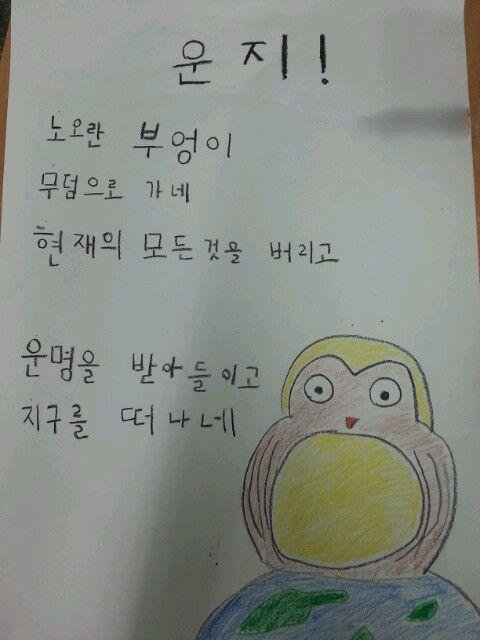 운지!
노오란 부엉이
무덤으로 가네
현재의 모든것을 버리고
운명을 받아들이고
지구를 떠나네